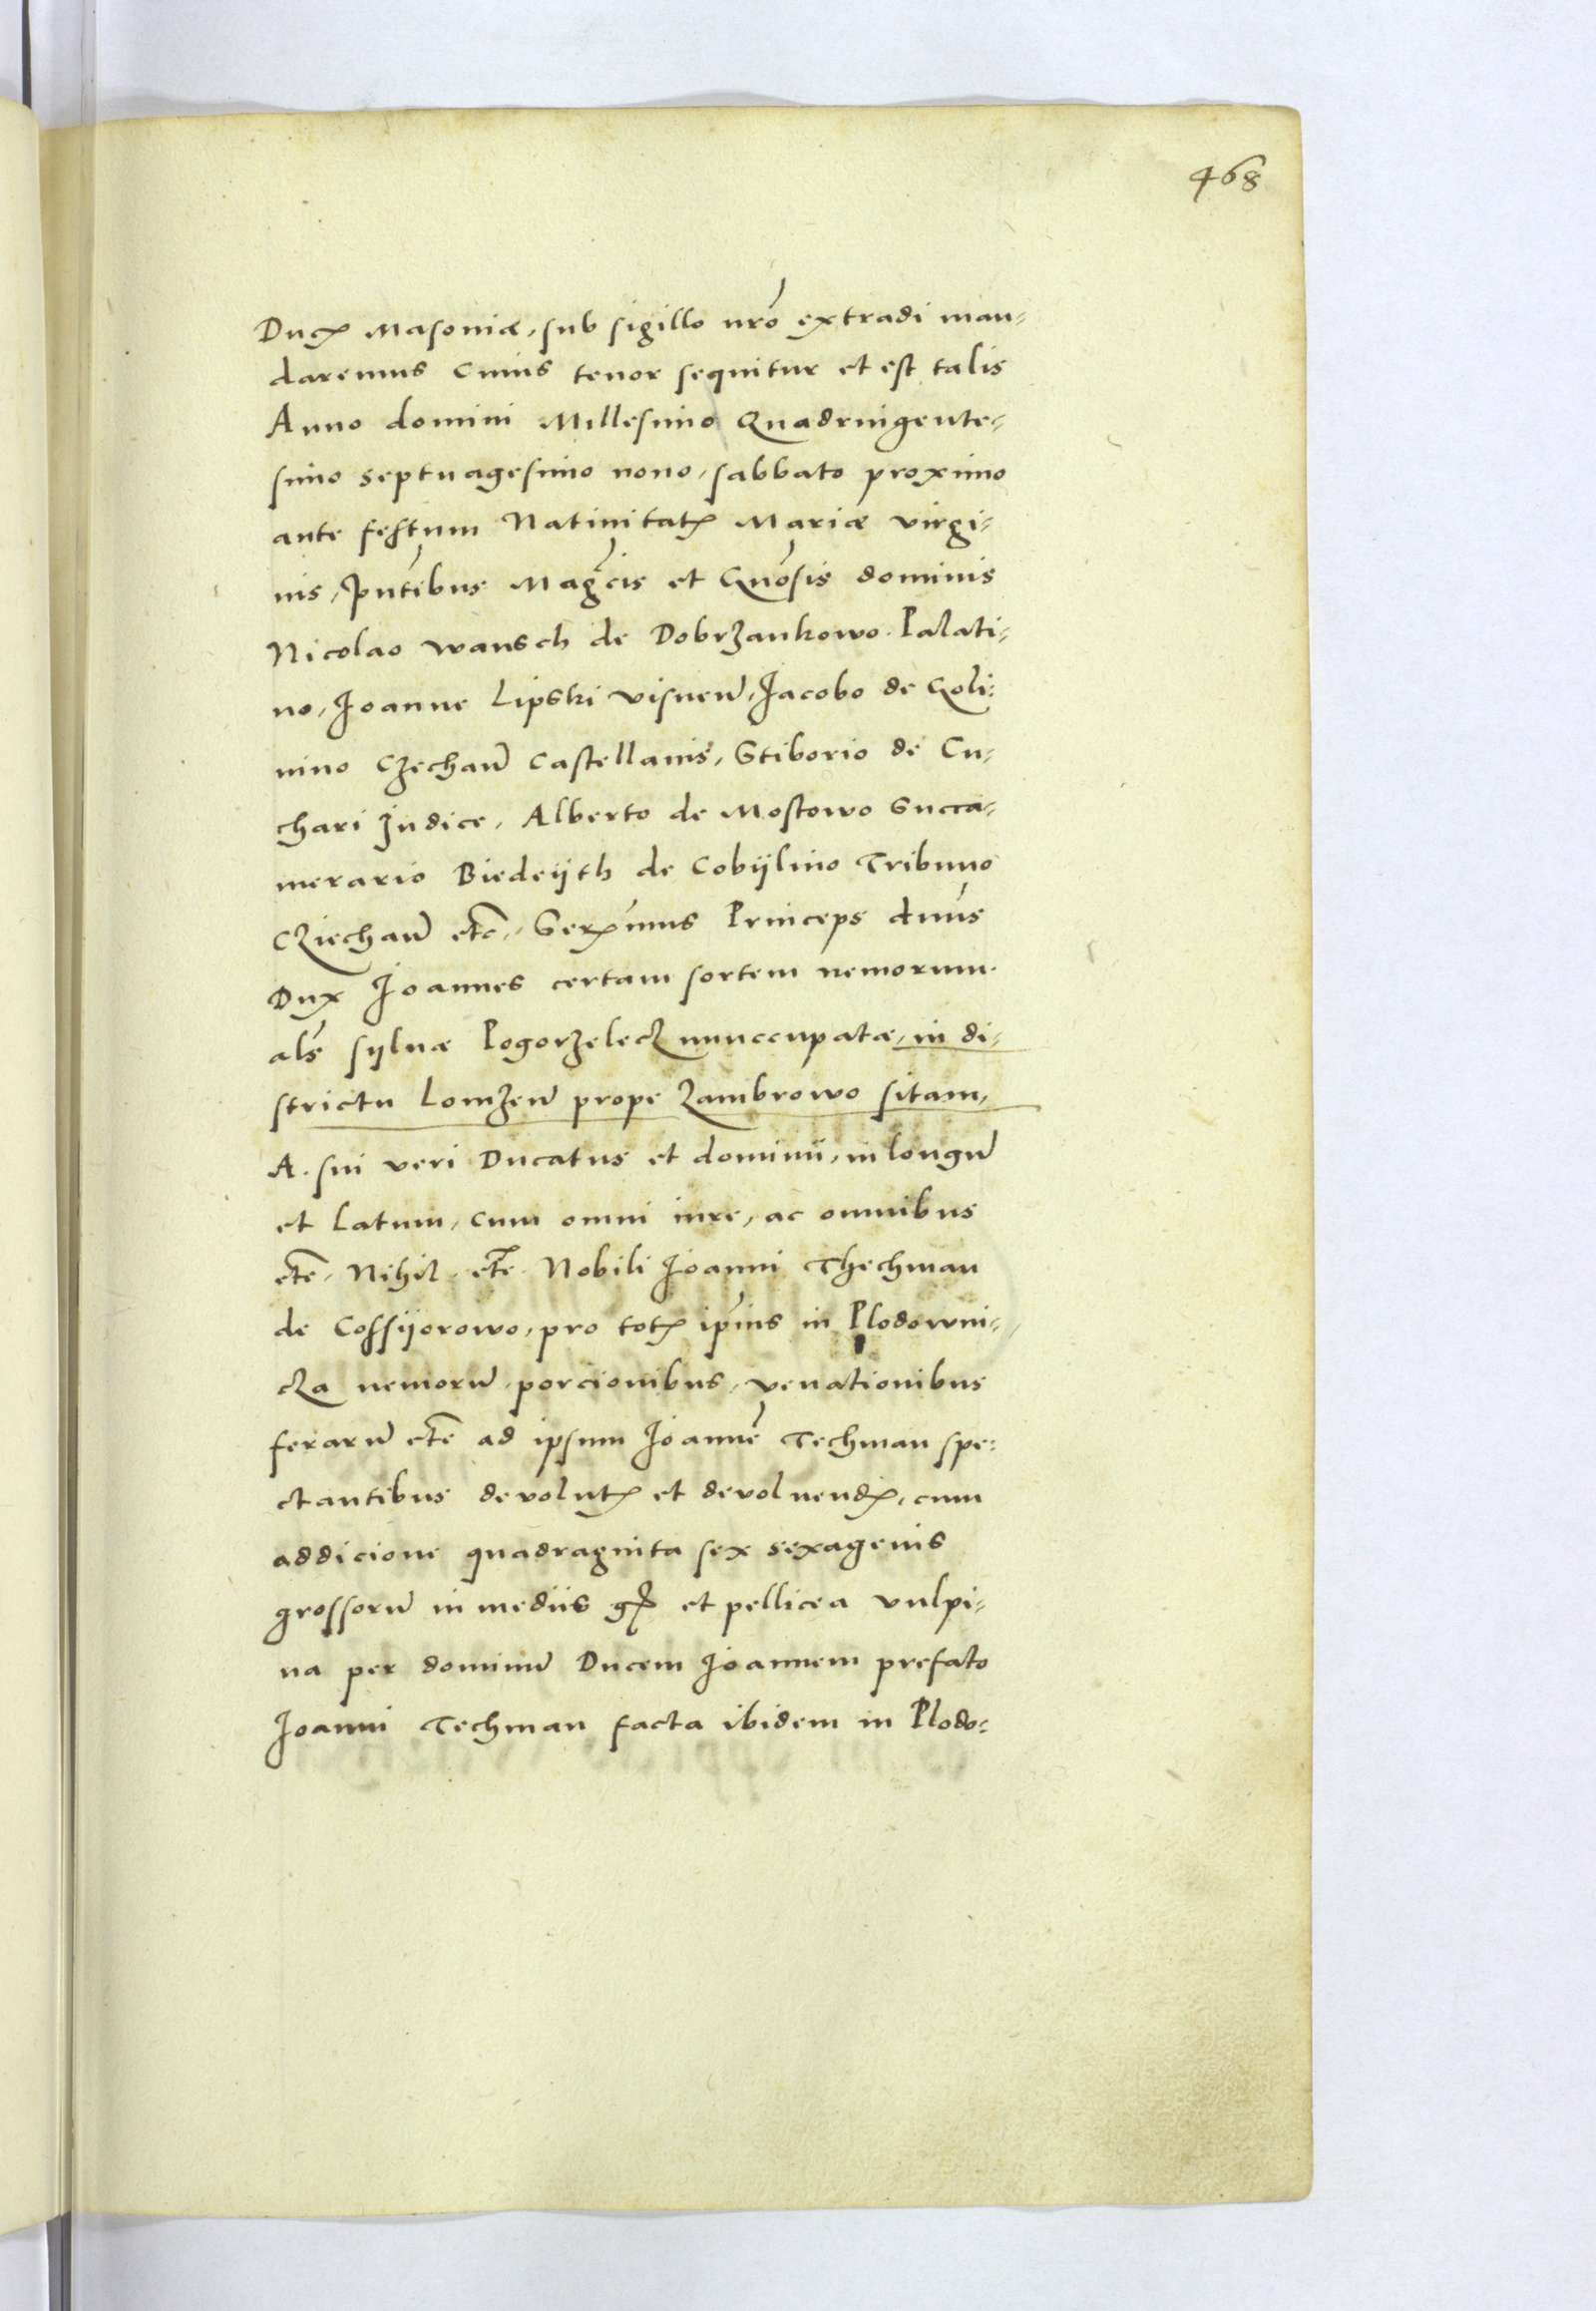 468
Ducꝭ Masoniæ, sub sigillo nr̃o extradi man-
daremus Cuius tenor sequitur et est talis
Anno domini Millesimo Quadringente-
simo septuagesimo nono, sabbato proximo
ante festum Natiuitatꝭ Mariæ virgi-
nis, Pn̄tibus Magcis et Gn̄osis dominis
Nicolao wansch de Dobrzankowo Palati-
no, Joanne Lipski visnen̄, Jacobo de Goli-
nino Czechan̄ Castellanis, Stiborio de Cu-
chari Judice, Alberto de Mostowo Succa-
merario Biedeijth de Cobijlino Tribuno
Cziechan̄ etc̄, Serꝭmus Princeps dn̄us
Dux Joannes certam sortem nemorum
als̄ sijluæ Pogorzelecz nunccupatæ, in di-
strictu Lomzen̄ prope Zambrowo sitam,
A. sui veri Ducatus et dominii, in longū
et latum, cum omni iure, ac omnibus
etc̄. Nihil etc̄. Nobili Joanni Thechman
de Cossijorowo, pro totꝭ ip̄ius in Plodowni-
cza nemorū porcionibus, venationibus
ferarū etc̄ ad ipsum Joannē Techman spe-
ctantibus devolutꝭ et devoluendꝭ, cum
addicione quadraginta sex sexagenis
grossorū in mediis gꝭ et pellicea vulpi-
na per dominū Ducem Joannem prefato
Joanni Techman facta ibidem in Plodo-